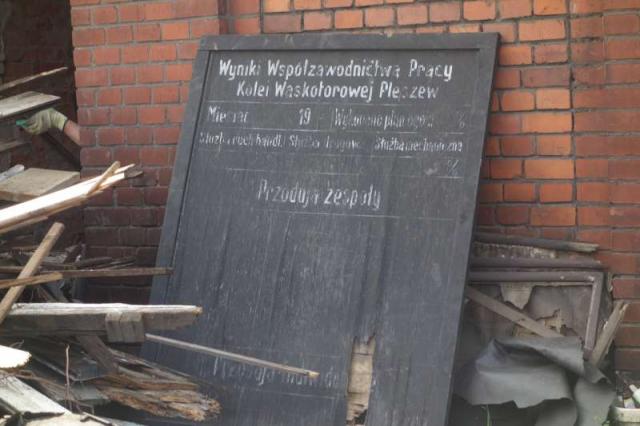 Wyniki Współzawodnictwa Pracy
Kolei Wąskotorowej Pleszew
Miesiąc 19 Wykonano plan ogól. %
Służba ruch handl. Służba drogowa Służba mechaniczna
%
Przodują zespoły
Przodują indywidu